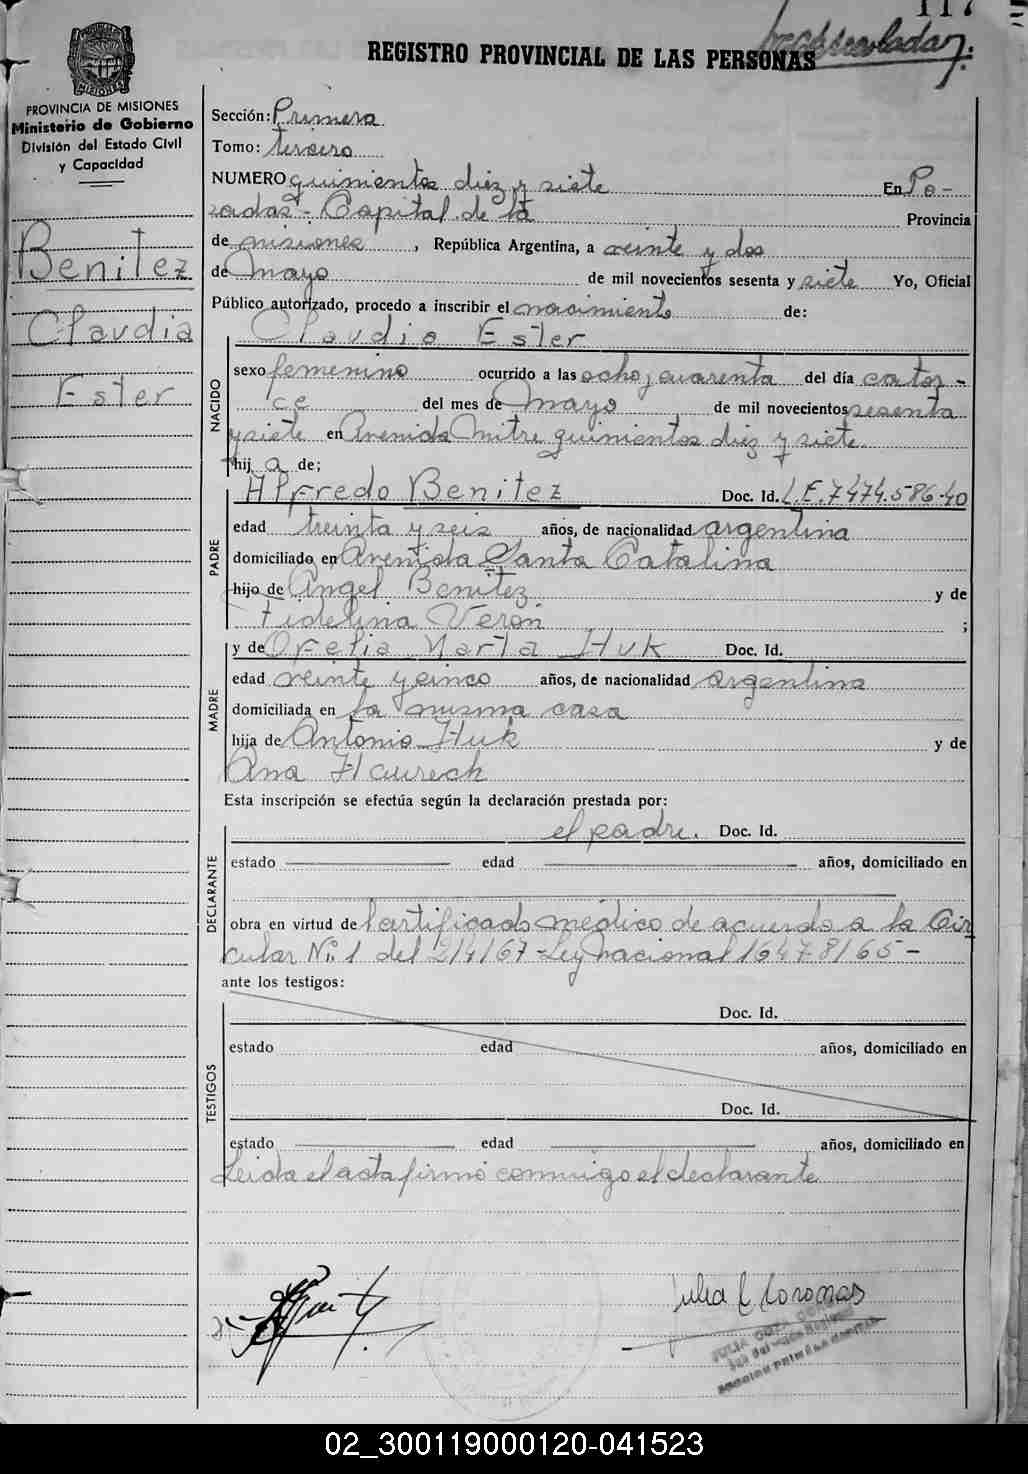 117
REGISTRO PROVINCIAL DE LAS PERSONAS
PROVINCIA DE MISIONES
Ministerio de Gobierno
División del Estado Civil
y Capacidad
Benitez
Claudia
Ester
Sección: Primera
Tomo: tercero
NUMERO quinientos diez y siete En Po-
sadas - Capital de la Provincia
de misiones, República Argentina, a veinte y dos
de Mayo de mil novecientos sesenta y siete Yo, Oficial
Público autorizado, procedo a inscribir el nacimiento de:
Claudia Ester
NACIDO
sexo femenino ocurrido a las ocho, cuarenta del día cator-
ce del mes de Mayo de mil novecientos sesenta
y siete en Avenida Mitre quinientos diez y siete
hij a de;
PADRE
Alfredo Benitez Doc. Id. L.E. 7.474.586-40
edad treinta y seis años, de nacionalidad argentina
domiciliado en Avenida Santa Catalina
hijo de Angel Benitez y de
Fidelina Verón ;
MADRE
y de Ofelia Marta Huk Doc. Id.
edad veinte y cinco años, de nacionalidad argentina
domiciliada en la misma casa
hija de Antonio Huk y de
Ana Haureck
Esta inscripción se efectúa según la declaración prestada por:
DECLARANTE
el padre. Doc. Id.
estado edad años, domiciliado en
obra en virtud de certificado médico de acuerdo a la Cir
cular Nº 1 del 2/4/67 - Ley nacional 16478/65 -
ante los testigos:
TESTIGOS
Doc. Id.
estado edad años, domiciliado en
Doc. Id.
estado edad años, domiciliado en
Leida el acta firmó conmigo el declarante
Julia C Coronas
JULIA
02_300119000120-041523